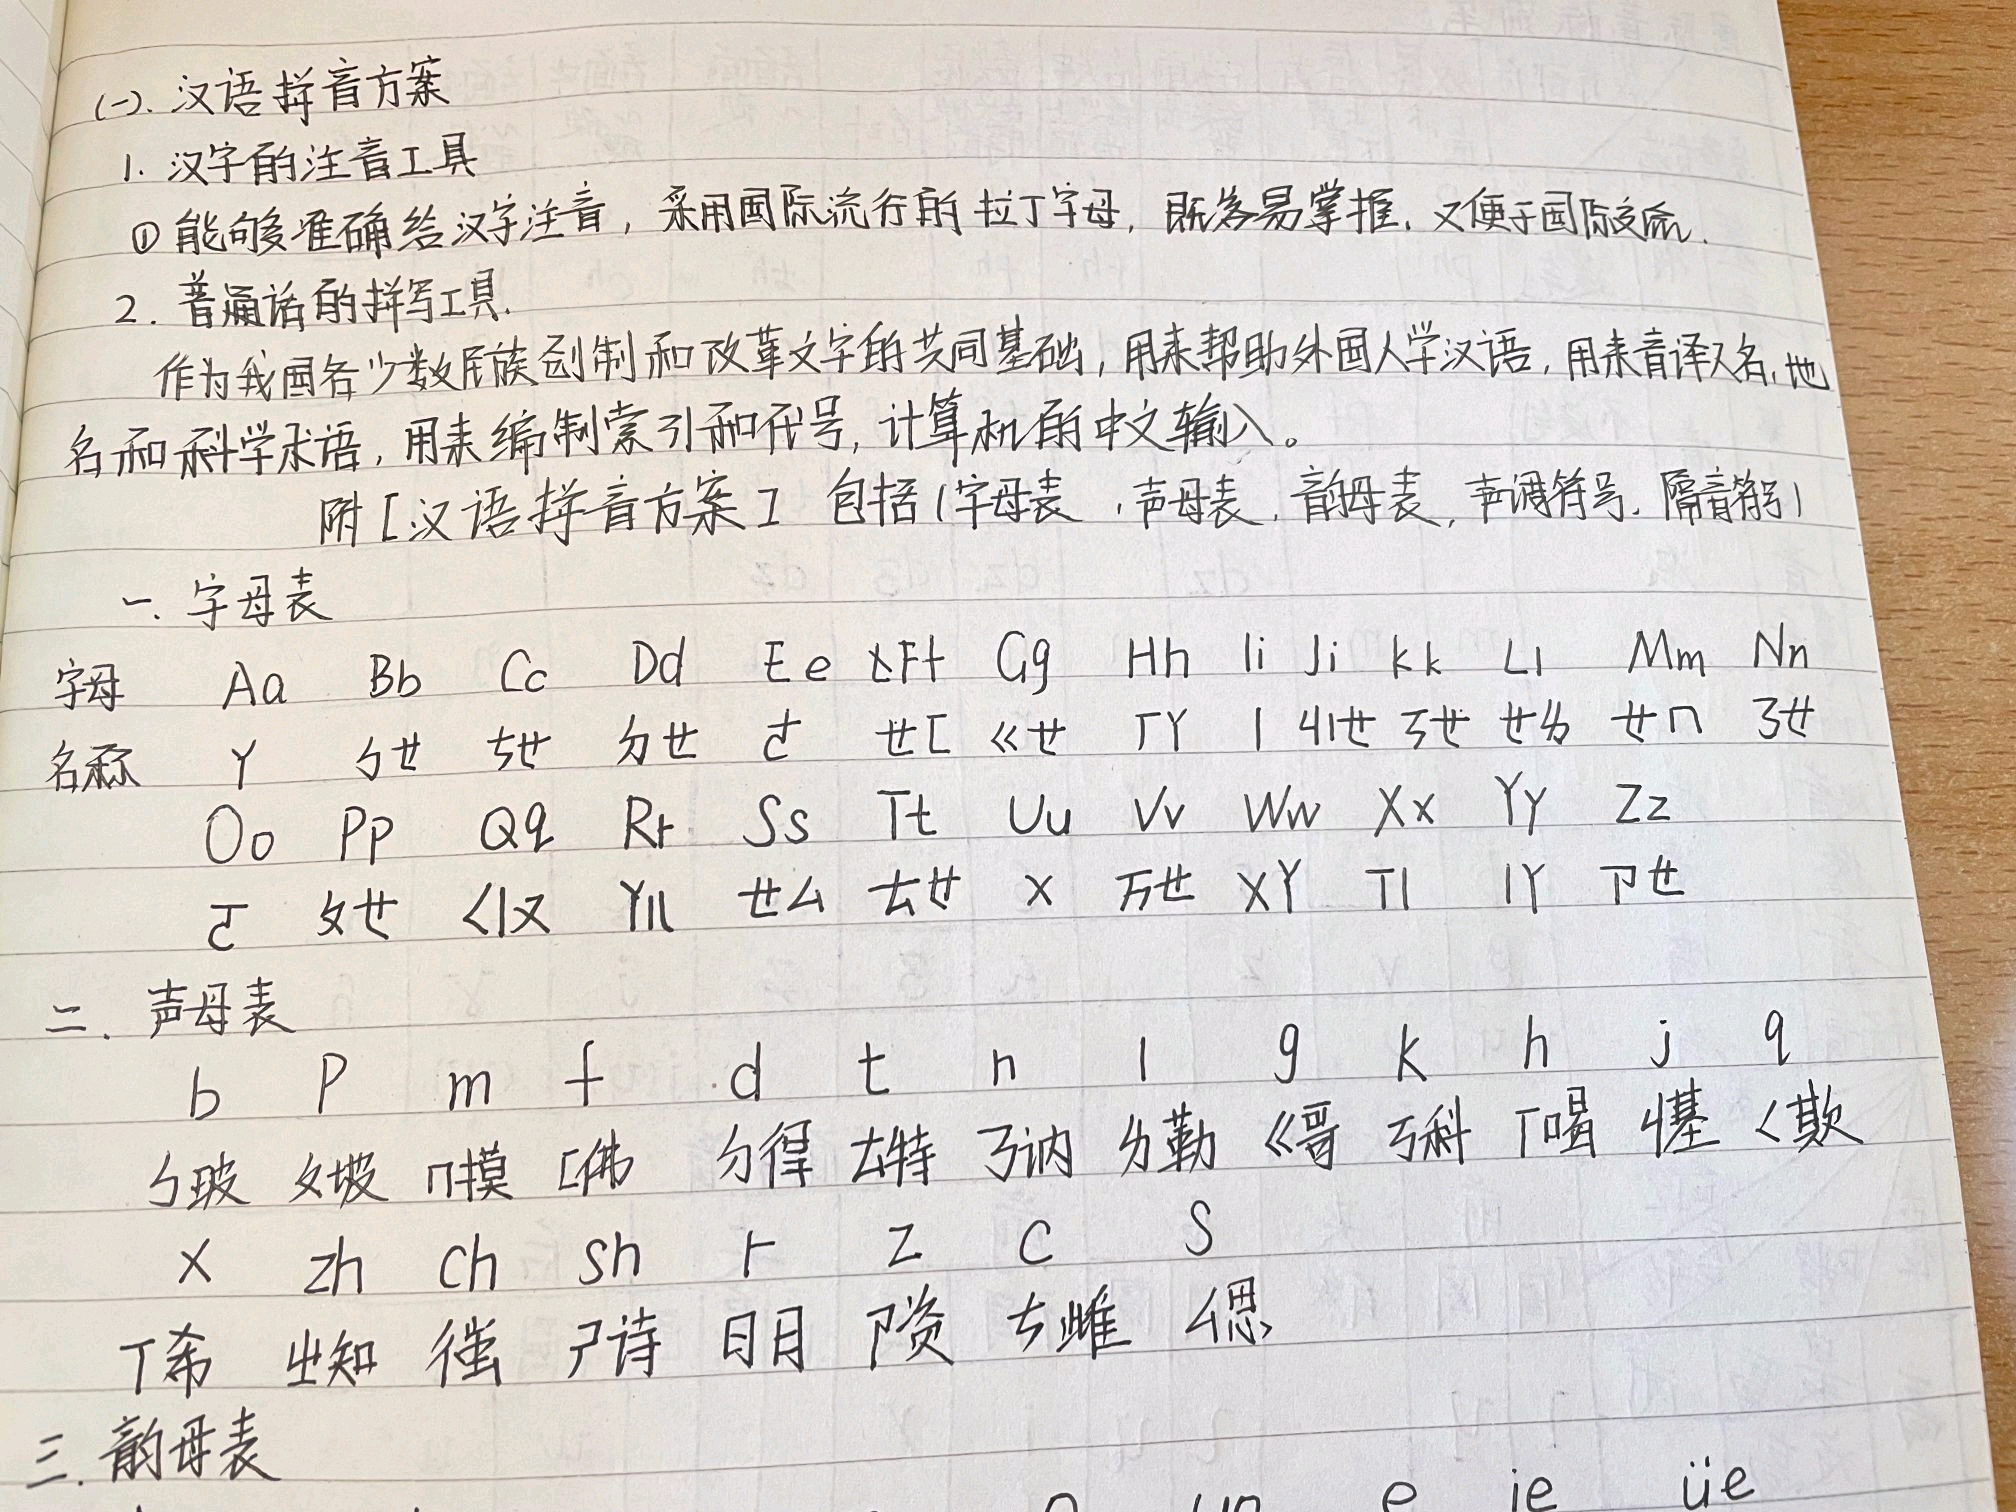 (一). 汉语拼音方案
1. 汉字的注音工具
① 能够准确给汉字注音, 采用国际流行的拉丁字母, 既容易掌握. 又便于国际交流.
2. 普通话的拼写工具.
作为我国各少数民族创制和改革文字的共同基础, 用来帮助外国人学汉语, 用来音译人名, 地
名和科学术语, 用来编制索引和代号, 计算机的中文输入。
附 [汉语拼音方案] 包括 (字母表, 声母表, 韵母表, 声调符号. 隔音符号)
一. 字母表
字母 Aa Bb Cc Dd Ee Ff Gg Hh Ii Jj Kk Ll Mm Nn
名称 ㄚ ㄅㄝ ㄘㄝ ㄉㄝ ㄜ ㄝㄈ ㄍㄝ ㄏㄚ ㄧ ㄐㄧㄝ ㄎㄝ ㄝㄌ ㄝㄇ ㄋㄝ
Oo Pp Qq Rr Ss Tt Uu Vv Ww Xx Yy Zz
ㄛ ㄆㄝ ㄑㄧㄡ ㄚㄦ ㄝㄙ ㄊㄝ ㄨ ㄪㄝ ㄨㄚ ㄒㄧ ㄧㄚ ㄗㄝ
二. 声母表
b p m f d t n l g k h j q
ㄅ玻 ㄆ坡 ㄇ摸 ㄈ佛 ㄉ得 ㄊ特 ㄋ讷 ㄌ勒 ㄍ哥 ㄎ科 ㄏ喝 ㄐ基 ㄑ欺
x zh ch sh r z c s
ㄒ希 ㄓ知 ㄕ诗 ㄖ日 ㄗ资 ㄘ雌 ㄙ思
三. 韵母表
e ie üe